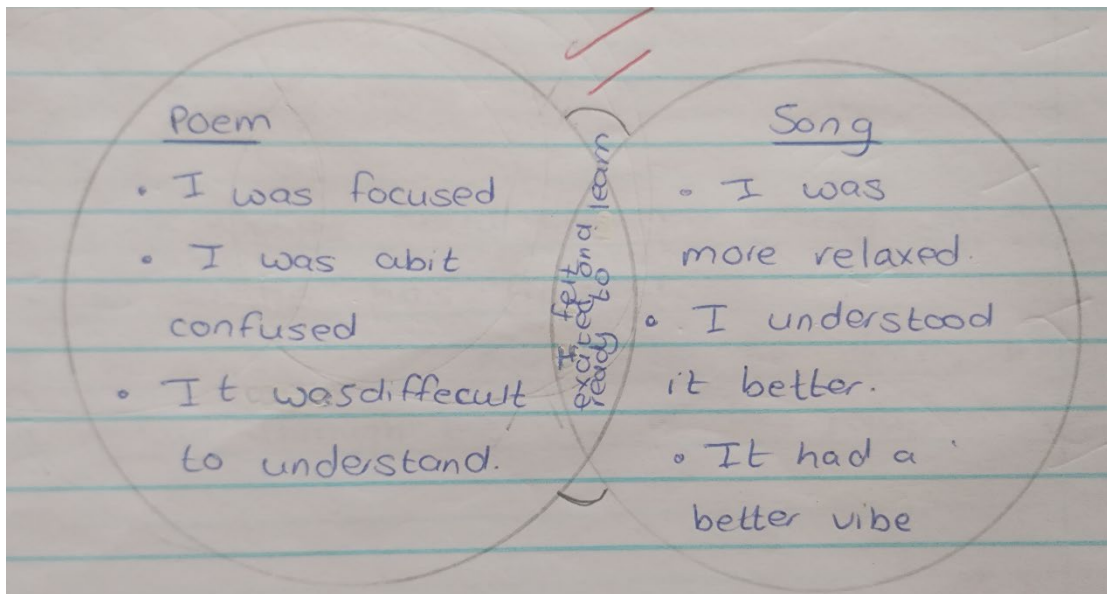 Poem
• I was focused
• I was abit
confused
• It wasdiffecult
to understand.
I felt
excited and
ready to learn
Song
• I was
more relaxed.
• I understood
it better.
• It had a
better vibe